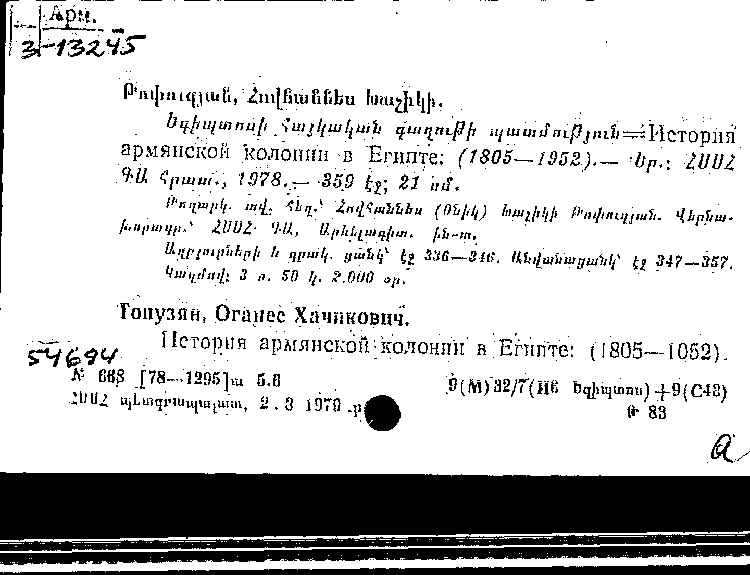 Арм.
3-13245
Թոփուզյան, Հովհաննես Խաչիկի.
Եգիպտոսի հայկական գաղութի պատմություն=История
армянской колонии в Египте: (1805—1952).— Եր.: ՀՍՍՀ
ԳԱ հրատ., 1978.— 359 էջ; 21 սմ.
Թողարկ. տվ. հեղ.՝ Հովհաննես (Օնիկ) Խաչիկի Թոփուզյան. Վերնա-
խորագր.՝ ՀՍՍՀ ԳԱ, Արևելագիտ. ին-տ.
Աղբյուրների և գրակ. ցանկ՝ էջ 336—346. Անվանացանկ՝ էջ 347—357.
Կազմով; 3 ռ. 50 կ. 2.000 օր.
Топузян, Оганес Хачикович.
История армянской колонии в Египте: (1805—1052).
54694
№ 663 [78—1295]ա 5.6
9(М)32/7(Н6 Եգիպտոս)+9(С43)
ՀՍՍՀ պետգրապալատ, 2. 3 1979
Թ 83
a